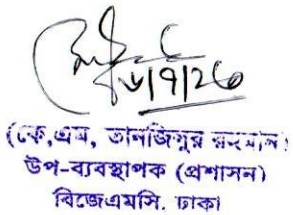 ৬/৭/২৬
(কে,এম, তানজিমুর রহমান)
উপ-ব্যবস্থাপক (প্রশাসন)
বিজেএমসি. ঢাকা